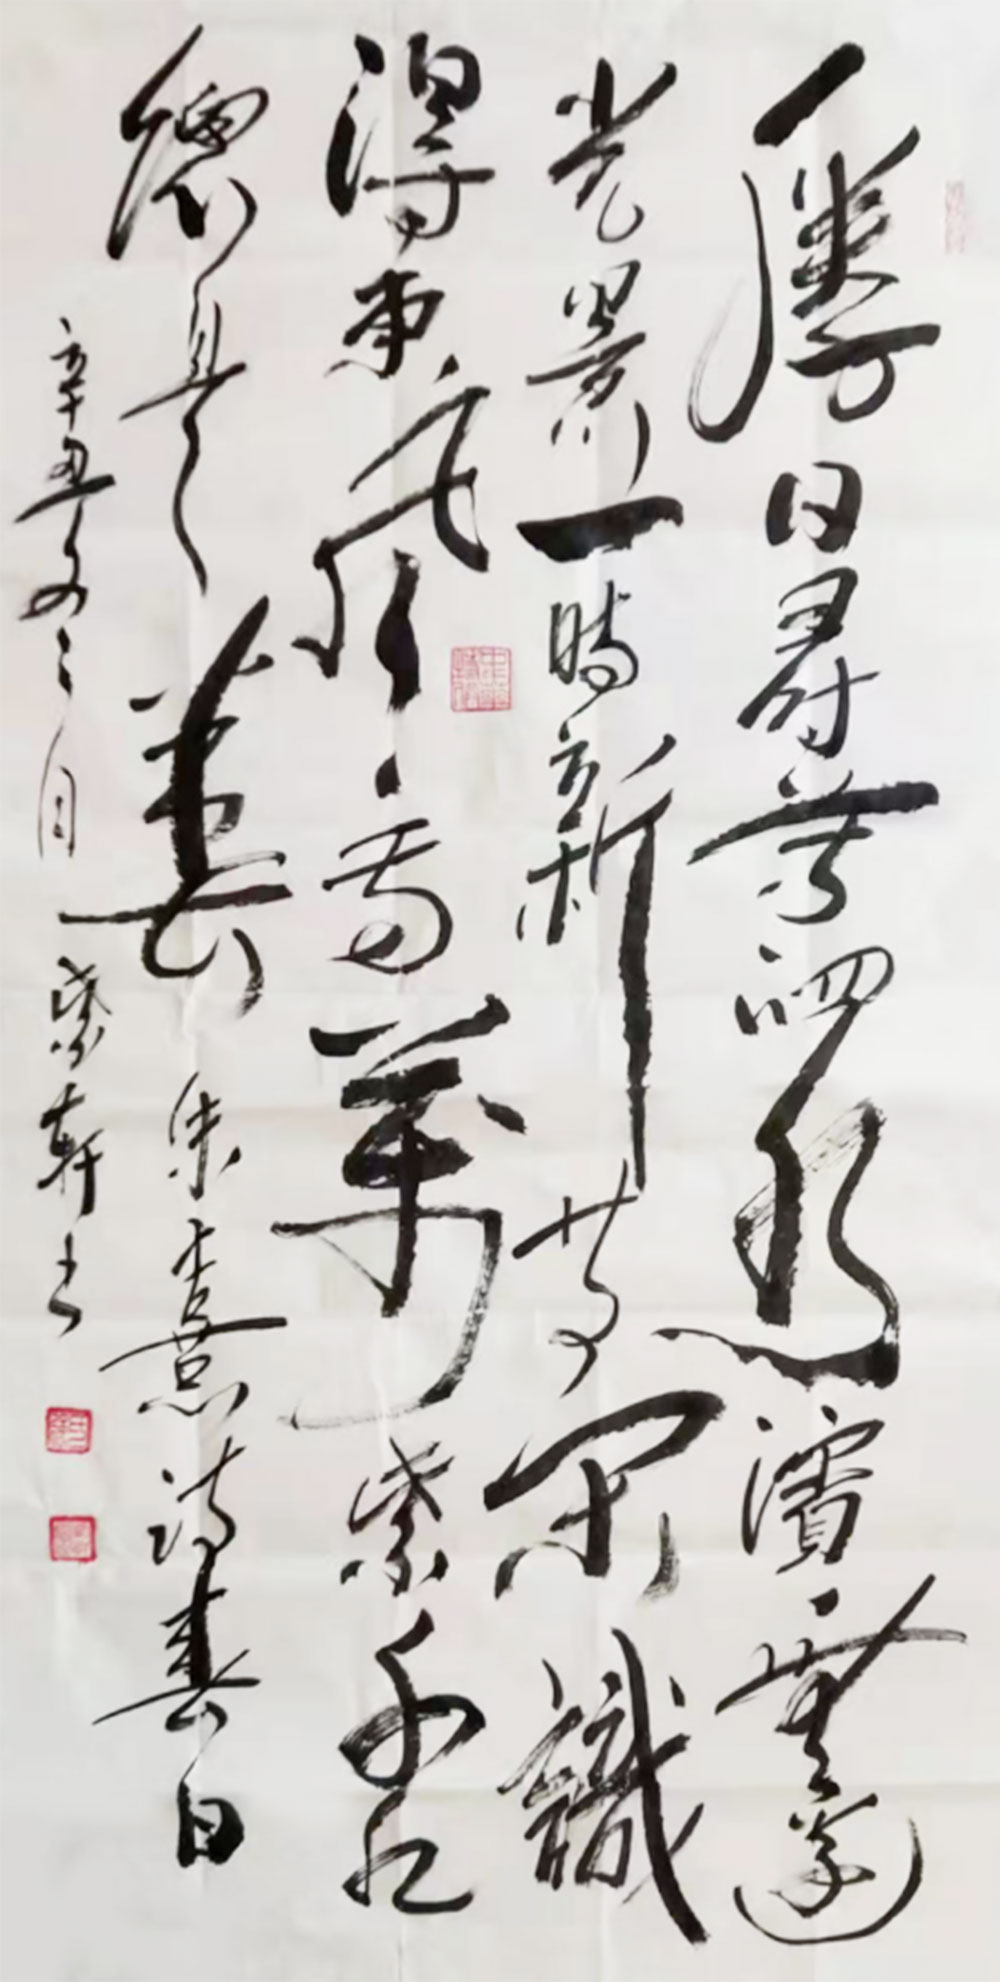 勝日尋芳泗水濱無邊
光景一時新等閑識
得東風面萬紫千紅
總是春朱熹詩春日
辛丑冬月紫軒書